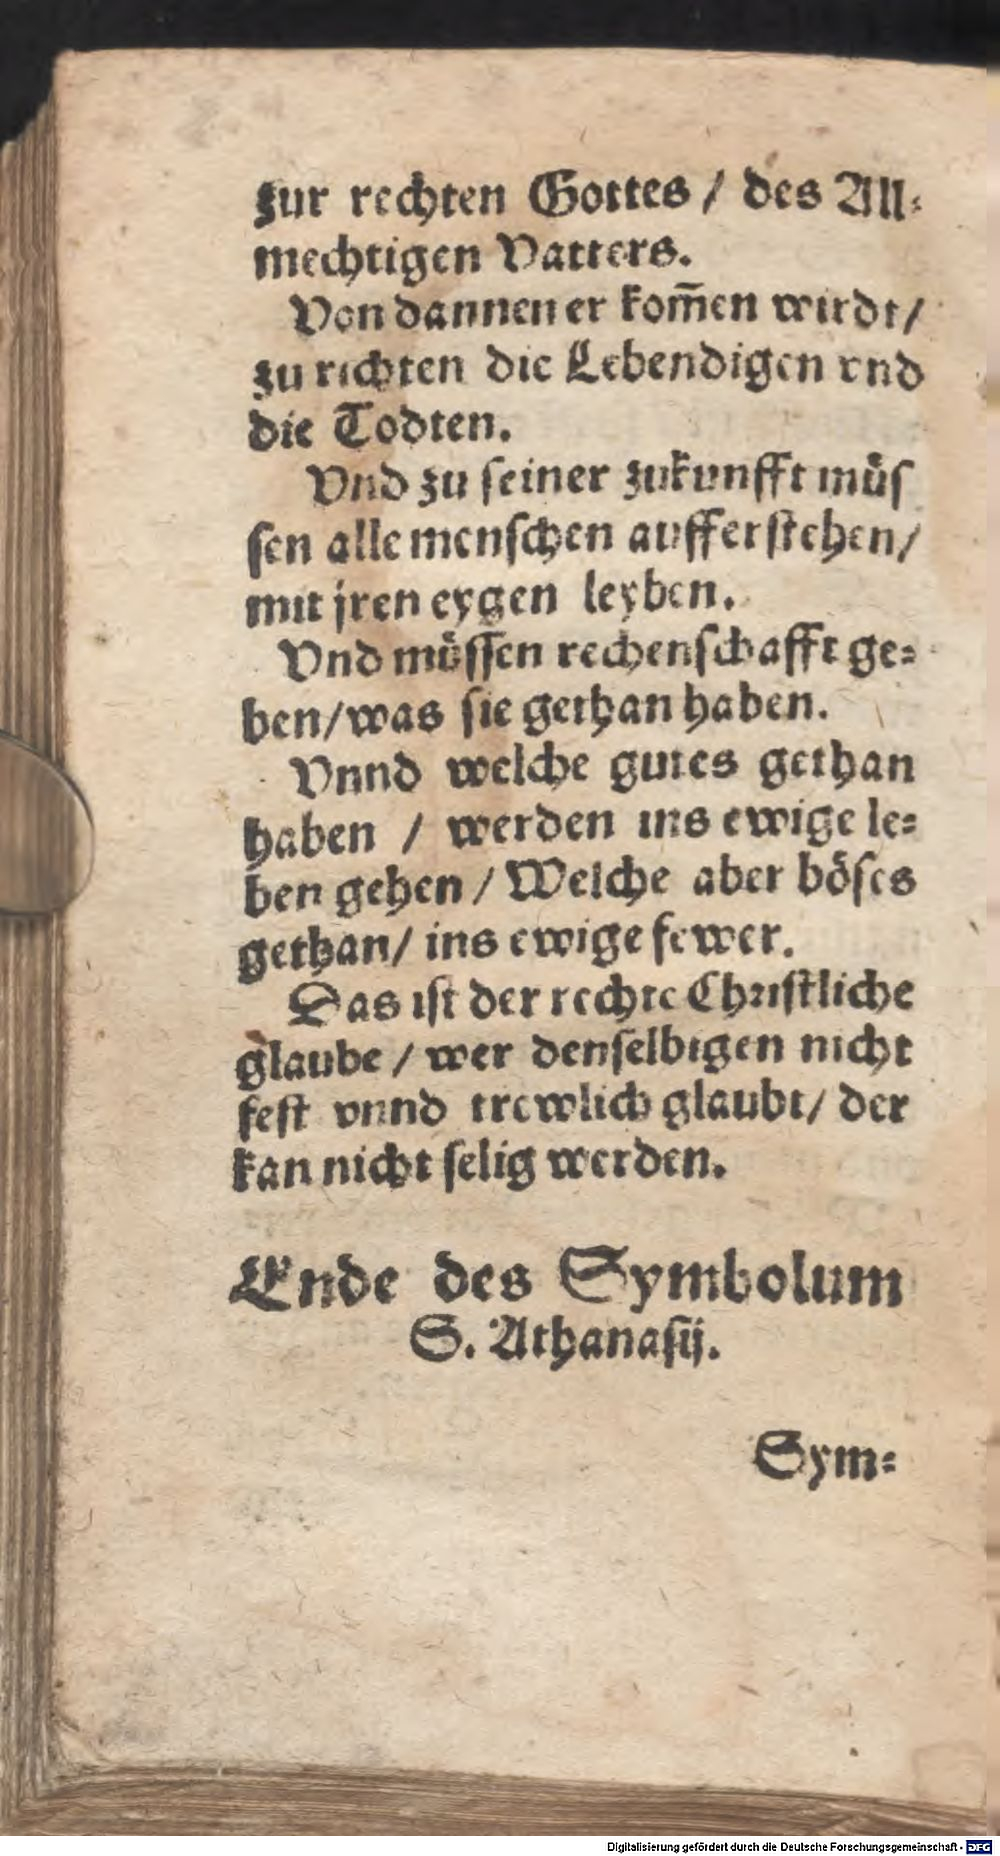 zur rechten Gottes / des All⸗
mechtigen Vatters.
Von dannen er kom̃en wirdt /
zu richten die Lebendigen vnd
die Todten.
Vnd zu ſeiner zukunfft müſ
ſen alle menſchen aufferſtehen /
mit jren eygen leyben.
Vnd müſſen rechenſchafft ge⸗
ben / was ſie gethan haben.
Vnnd welche gutes gethan
haben / werden ins ewige le⸗
ben gehen / Welche aber böſes
gethan / ins ewige fewer.
Das iſt der rechte Chriſtliche
glaube / wer denſelbigen nicht
feſt vnnd trewlich glaubt / der
kan nicht ſelig werden.
Ende des Symbolum
S. Athanaſij.
Sym⸗
Digitalisierung gefördert durch die Deutsche Forschungsgemeinschaft - DFG